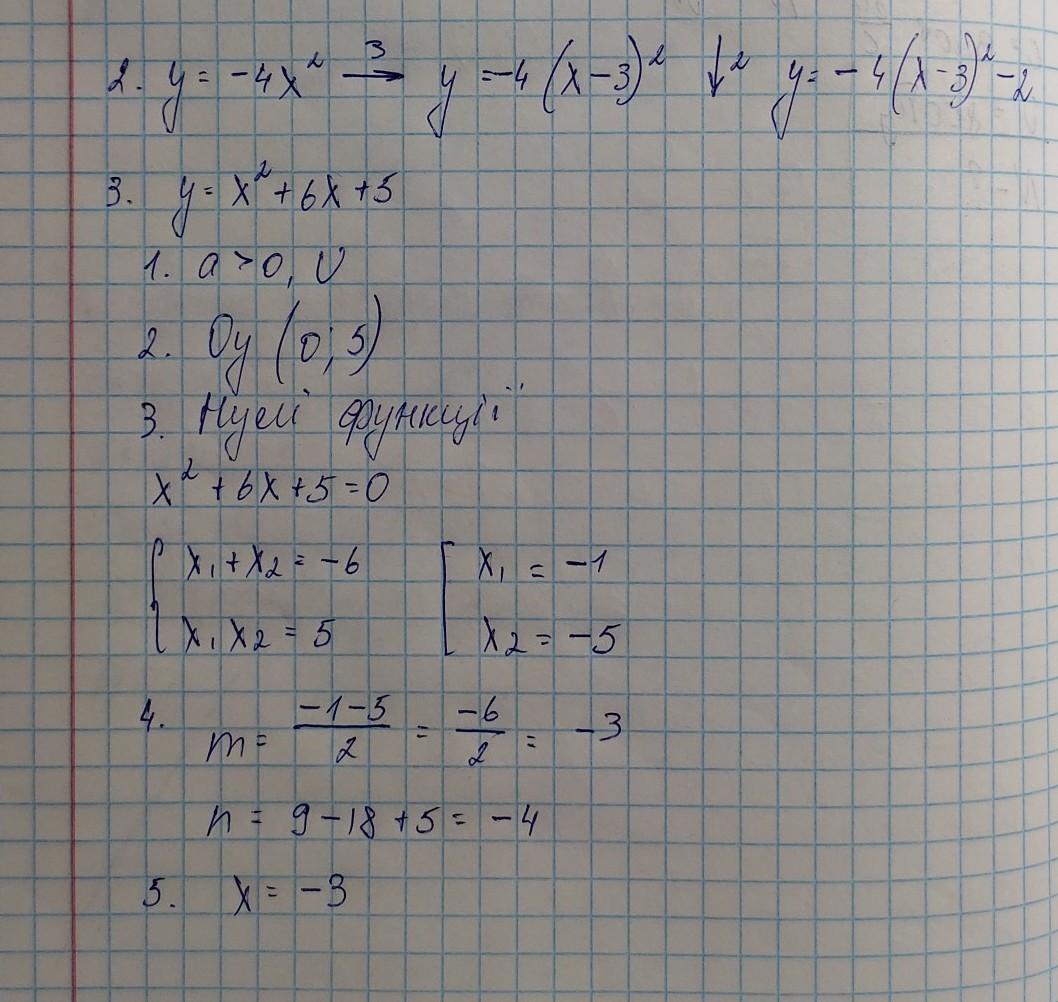 2. y = -4x² →3 y = -4(x-3)² ↓2 y = -4(x-3)² -2
3. y = x² + 6x + 5
1. a > 0, ∪
2. Oy (0; 5)
3. Нулі функції
x² + 6x + 5 = 0
{ x₁ + x₂ = -6 [ x₁ = -1
x₁ x₂ = 5 x₂ = -5
4. m = (-1-5)/2 = -6/2 = -3
n = 9 - 18 + 5 = -4
5. x = -3